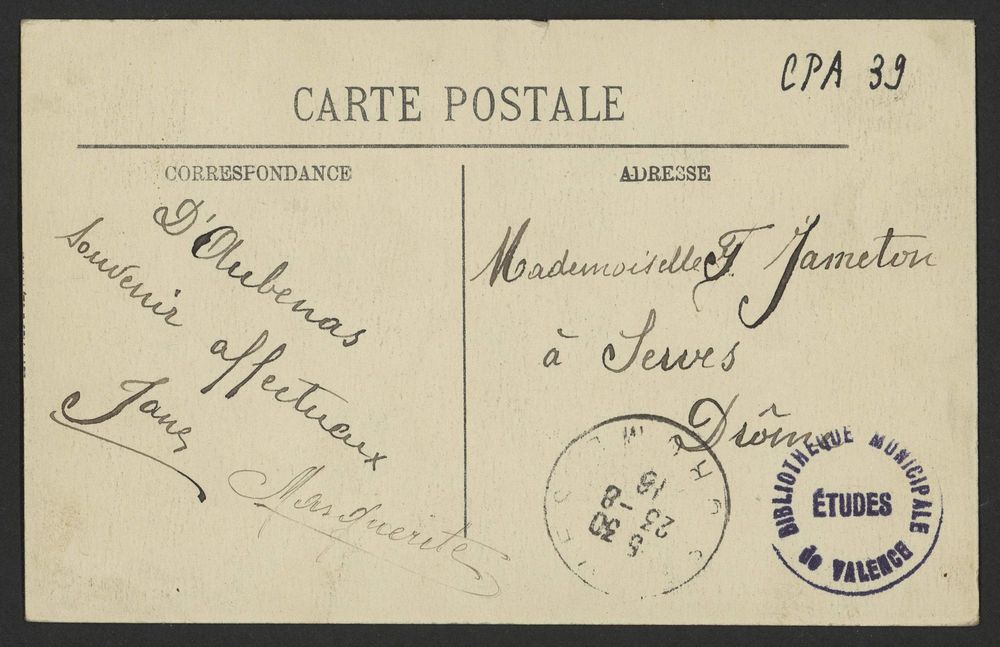 CPA 39
CARTE POSTALE
CORRESPONDANCE
ADRESSE
D'Aubenas
souvenir affectueux
Jane
Marguerite
Mademoiselle F. Jameton
à Serves
Drôme
5 30
23 -8
16
BIBLIOTHEQUE MUNICIPALE
ÉTUDES
de VALENCE